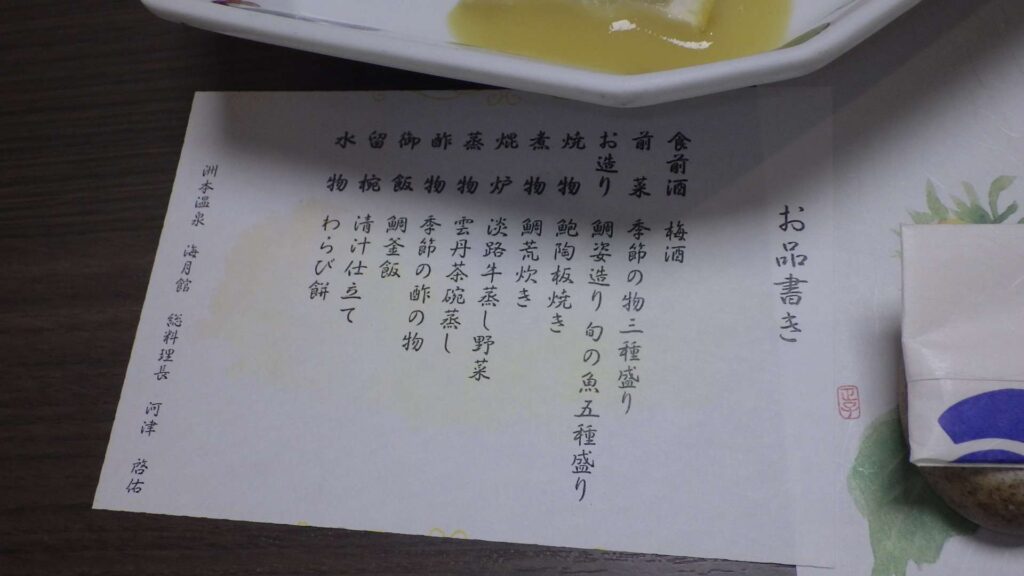 お品書き
食前酒 梅酒
前菜 季節の物三種盛り
お造り 鯛姿造り 旬の魚五種盛り
焼物 鮑陶板焼き
煮物 鯛荒炊き
焜炉 淡路牛蒸し野菜
蒸物 雲丹茶碗蒸し
酢物 季節の酢の物
御飯 鯛釜飯
留椀 清汁仕立て
水物 わらび餅
洲本温泉 海月館 総料理長 河津 啓佑